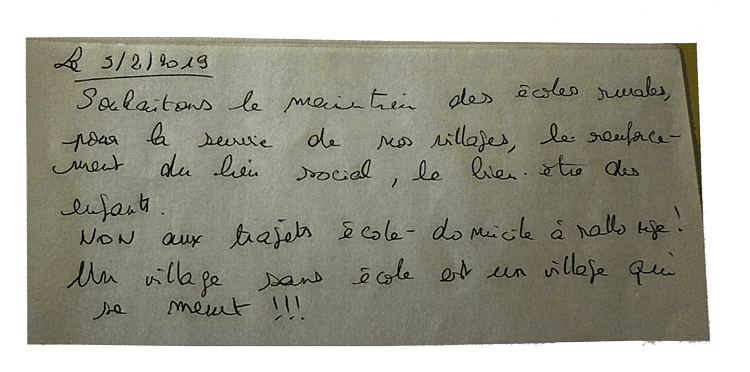 Le 5/2/2019
Souhaitons le maintien des écoles rurales,
pour la survie de nos villages, le renforce-
ment du lien social, le bien-être des
enfants.
NON aux trajets école-domicile à rallonge!
Un village sans école est un village qui
se meurt !!!